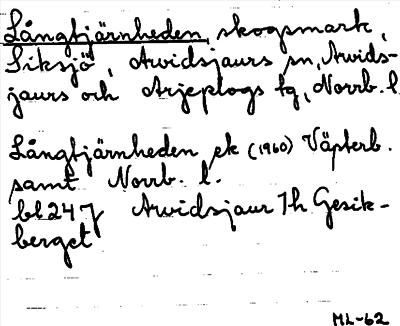 Långtjärnheden, skogsmark,
Siksjö, Arvidsjaurs sn, Arvids-
jaurs och Arjeplogs tg, Norrb. l.
Långtjärnheden ek (1960) Västerb.
samt Norrb. l.
bl 24 J Arvidsjaur 7h Gesik-
berget
ML-62